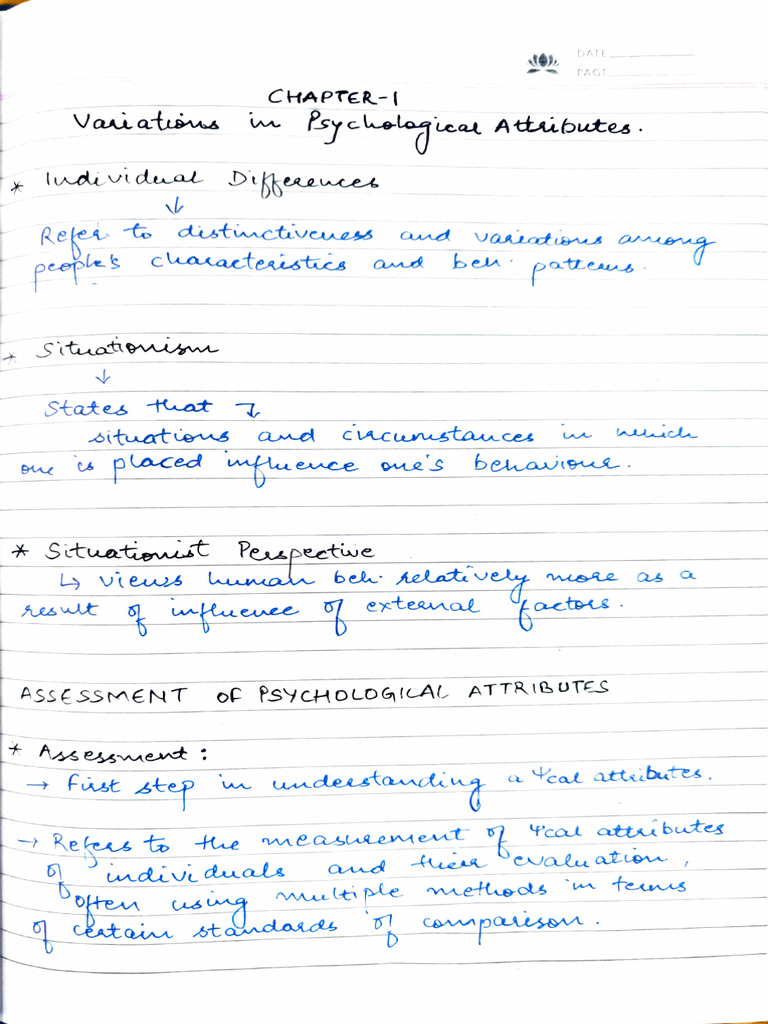 DATE
PAGE
CHAPTER-1
Variations in Psychological Attributes.
* Individual Differences
↓
Refer to distinctiveness and variations among
people's characteristics and beh. patterns.
* Situationism
↓
States that ↴
situations and circumstances in which
one is placed influence one's behaviour.
* Situationist Perspective
↳ views human beh. relatively more as a
result of influence of external factors.
ASSESSMENT OF PSYCHOLOGICAL ATTRIBUTES
* Assessment :
→ First step in understanding a Ψcal attributes.
→ Refers to the measurement of Ψcal attributes
of individuals and their evaluation,
often using multiple methods in terms
of certain standards of comparison.